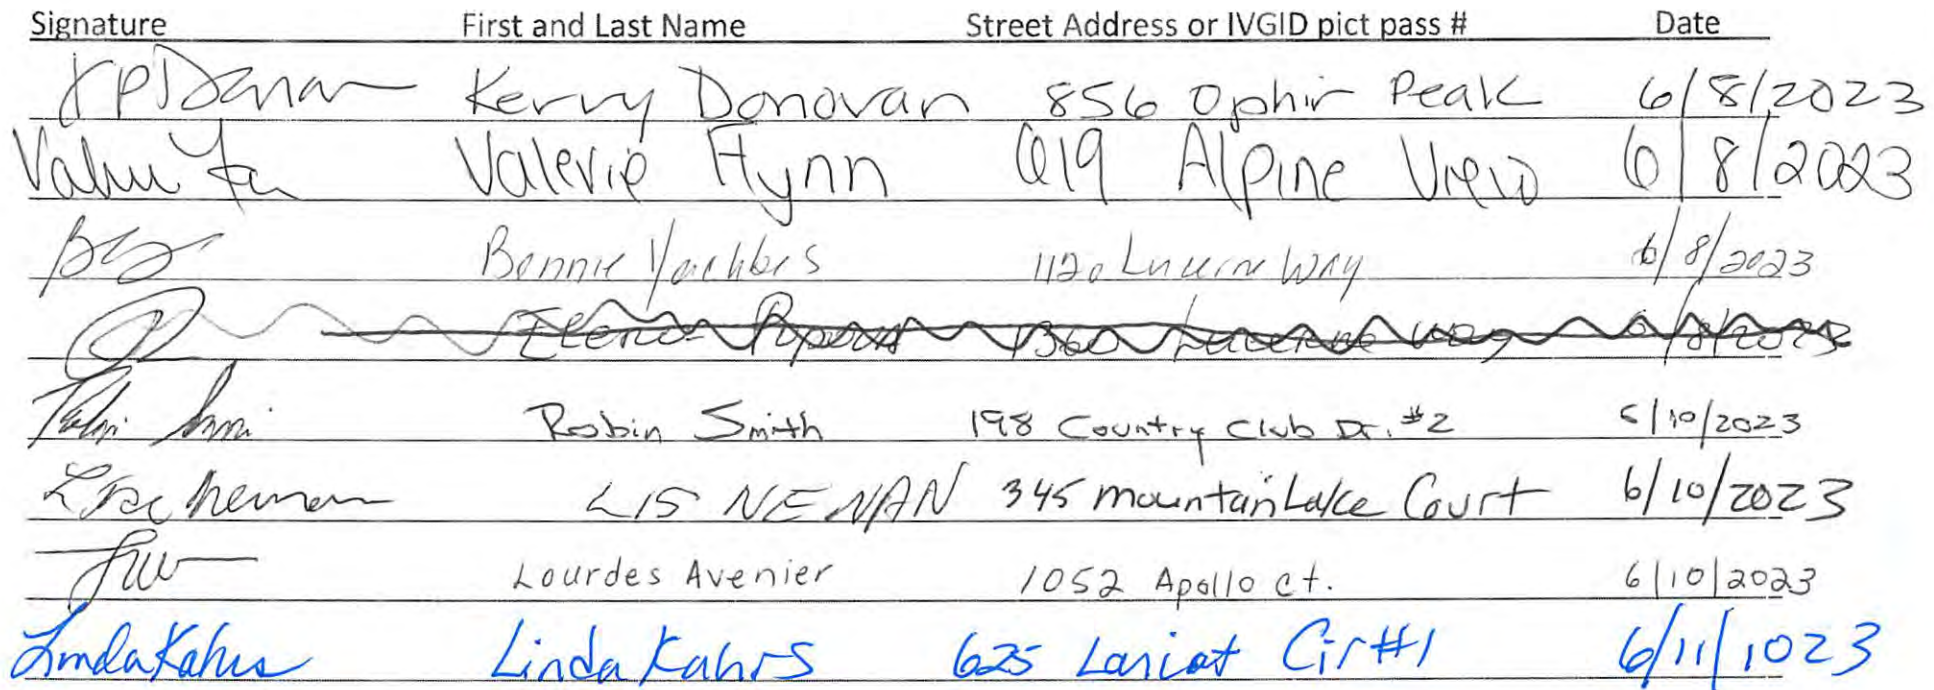 Signature First and Last Name Street Address or IVGID pict pass # Date
Kerry Donovan 856 Ophir Peak 6/8/2023
Valerie Flynn 619 Alpine View 6/8/2023
Bonnie 1120 Lucerne Way 6/8/2023
1360 Lucerne Way /8/2023
Robin Smith 198 Country Club Dr. #2 6/10/2023
LIS NENAN 345 Mountain Lake Court 6/10/2023
Lourdes Avenier 1052 Apollo ct. 6/10/2023
Linda Kahrs Linda Kahrs 625 Lariat Cir #1 6/11/1023